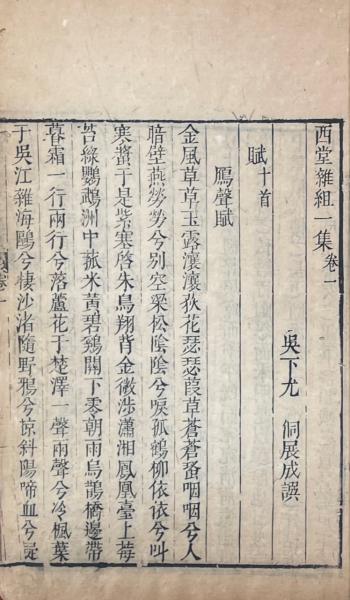 西堂雜組一集卷一
吳下尤 侗展成譔
賦十首
鴈聲賦
金風草草玉露瀼瀼荻花瑟瑟葭草蒼蒼蛩咽咽兮人
暗壁燕勞勞兮別空梁松陰陰兮唳孤鶴柳依依兮叫
寒螿于是紫塞啓朱鳥翔背金微涉瀟湘鳳凰臺上莓
苔綠鸚鵡洲中菰米黃碧鷄關下零朝雨烏鵲橋邊帶
暮霜一行兩行兮落蘆花于楚澤一聲兩聲兮冷楓葉
于吳江雜海鷗兮棲沙渚隨野鴉兮掠斜陽啼血兮是